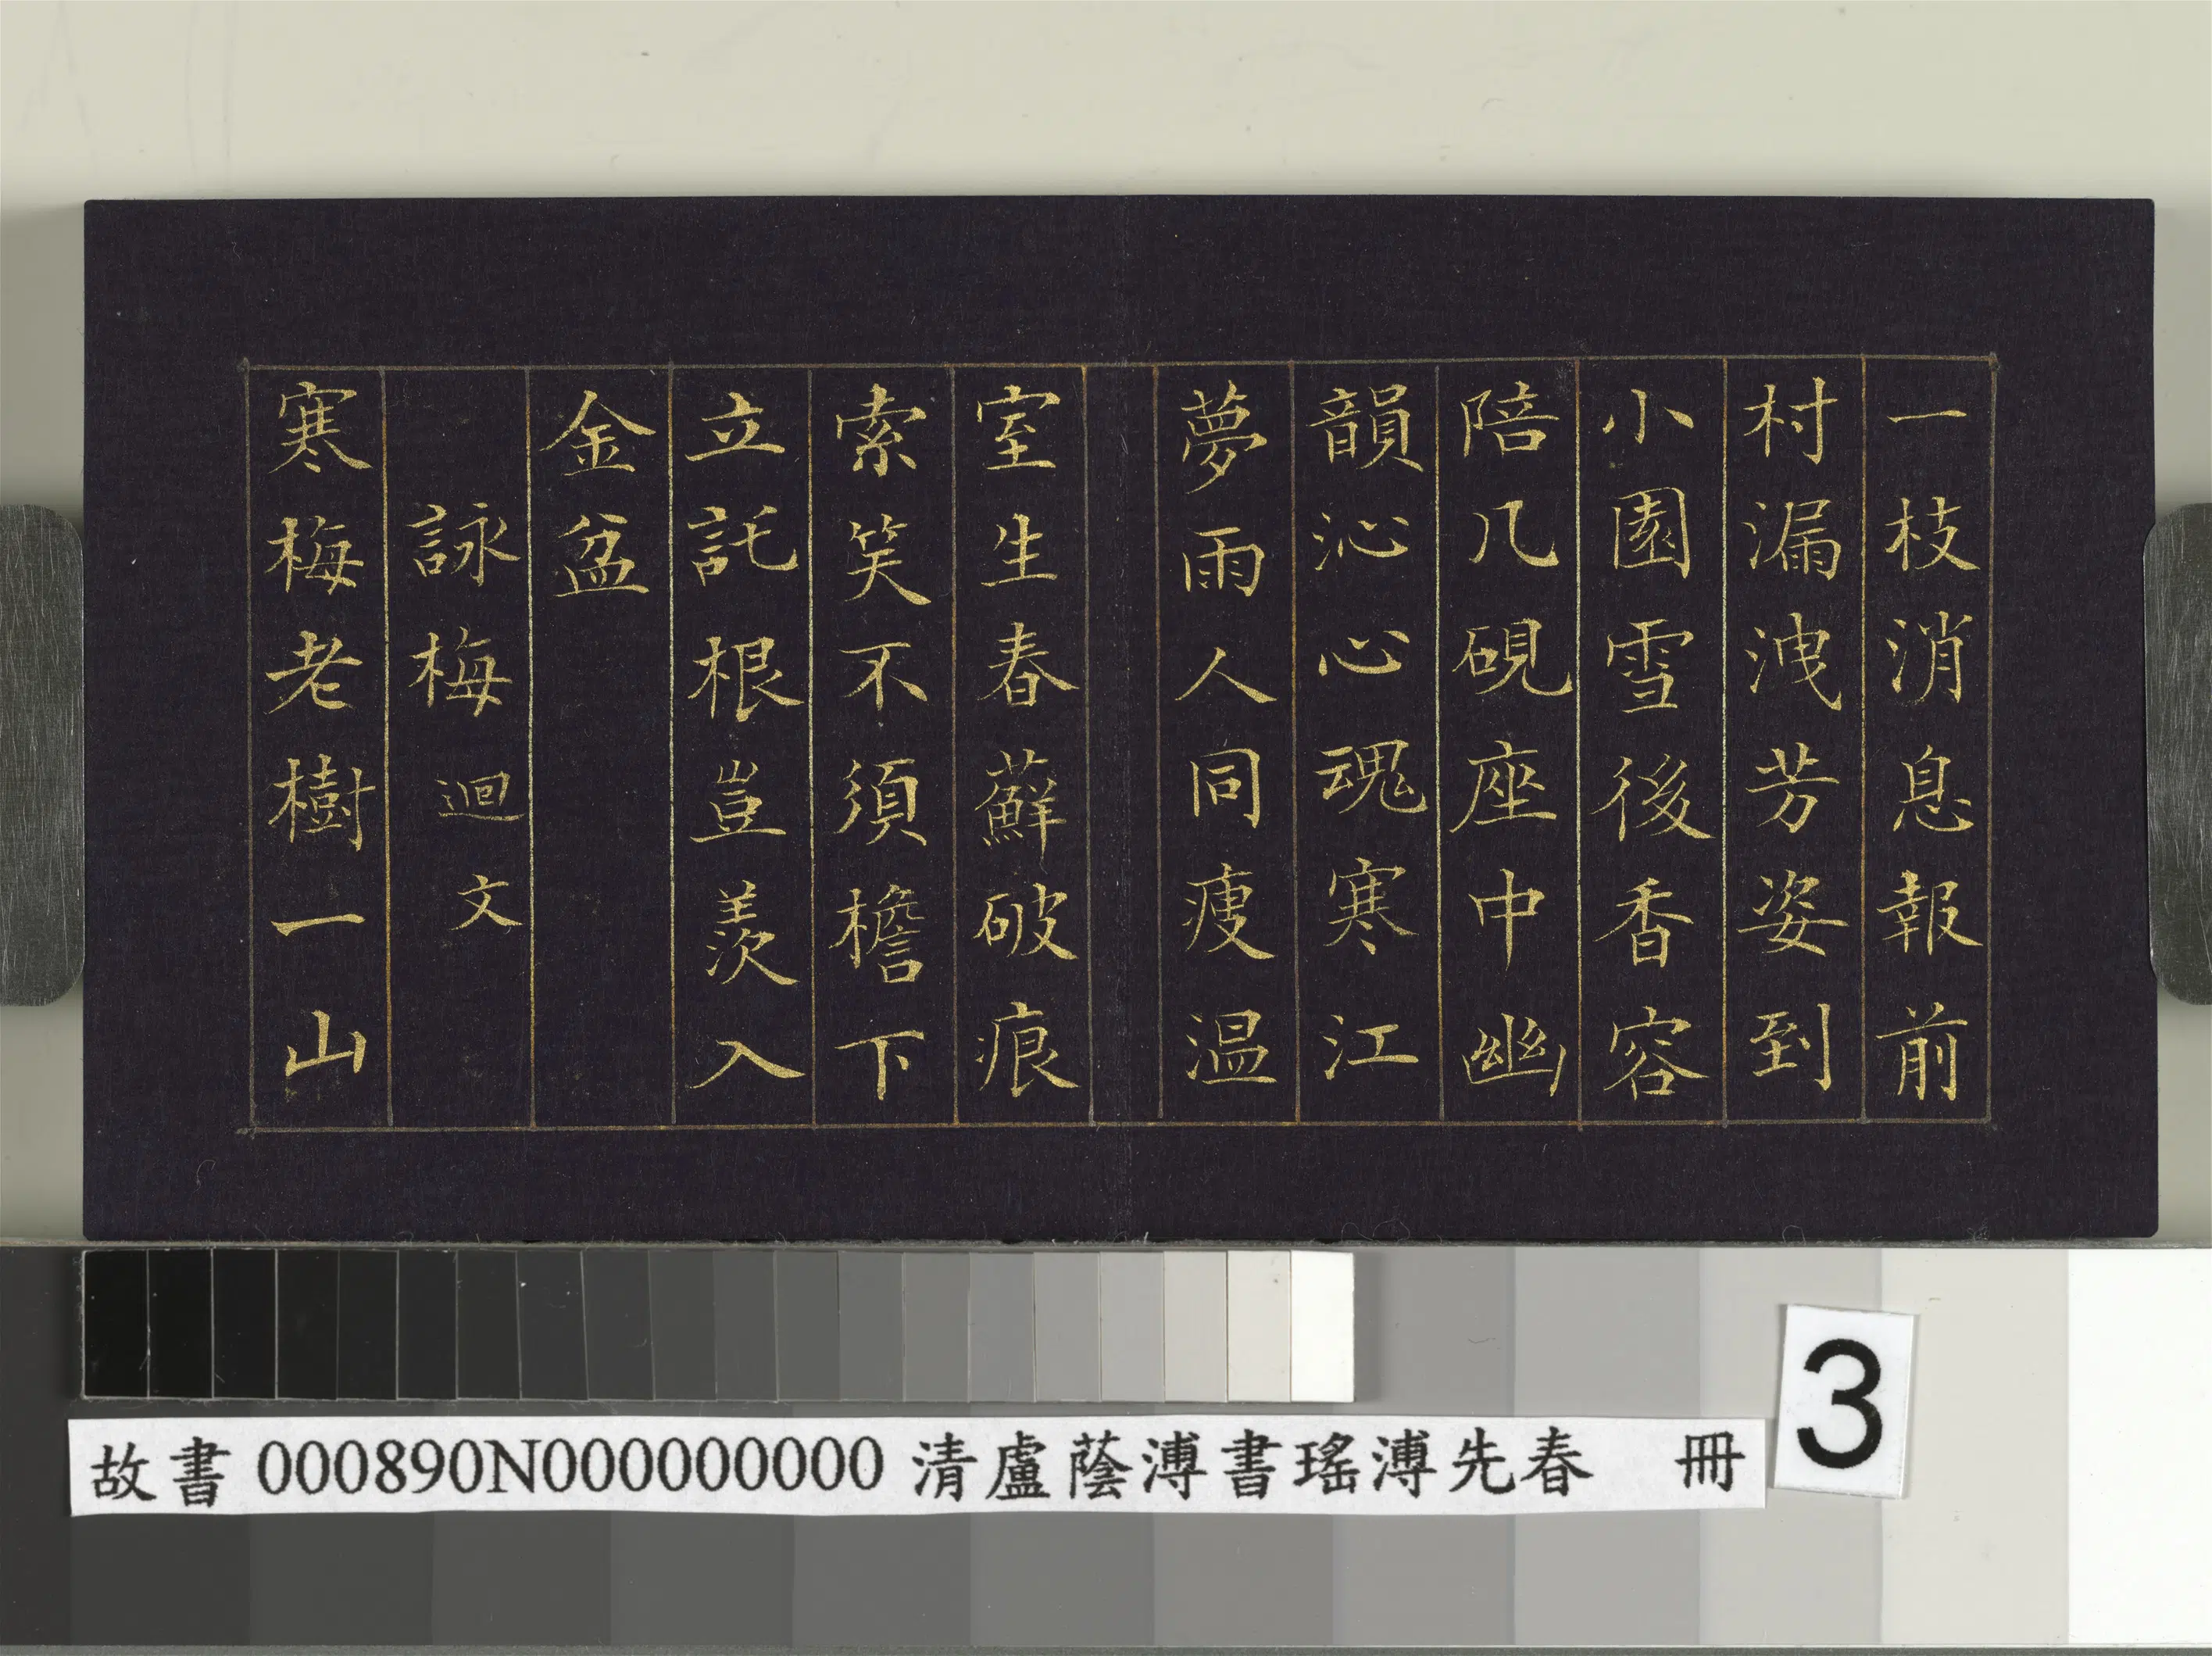 一枝消息報前
村漏洩芳姿到
小園雪後香容
陪几硯座中幽
韻沁心魂寒江
夢雨人同瘦溫
室生春蘚破痕
索笑不須檐下
立託根豈羨入
金盆
詠梅迴文
寒梅老樹一山
故書000890N000000000清盧蔭溥書瑤溥先春 冊
3